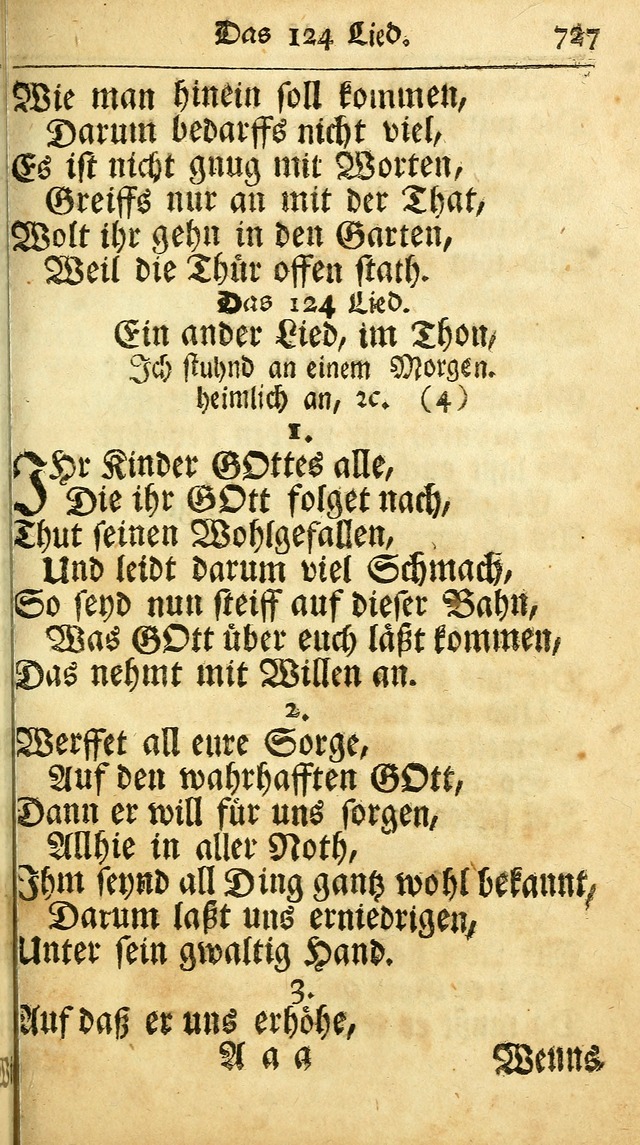 Das 124 Lied. 727
Wie man hinein soll kommen,
Darum bedarffs nicht viel,
Es ist nicht gnug mit Worten,
Greiffs nur an mit der That,
Wolt ihr gehn in den Garten,
Weil die Thür offen stath.
Das 124 Lied.
Ein ander Lied, im Thon,
Ich stuhnd an einem Morgen.
heimlich an, ꝛc. (4)
1.
IHr Kinder GOttes alle,
Die ihr GOtt folget nach,
Thut seinen Wohlgefallen,
Und leidt darum viel Schmach,
So seyd nun steiff auf dieser Bahn,
Was GOtt über euch läßt kommen,
Das nehmt mit Willen an.
2.
Werffet all eure Sorge,
Auf den wahrhafften GOtt,
Dann er will für uns sorgen,
Allhie in aller Noth,
Ihm seynd all Ding gantz wohl bekannt,
Darum laßt uns erniedrigen,
Unter sein gwaltig Hand.
3.
Auf daß er uns erhöhe,
A a a Wenns